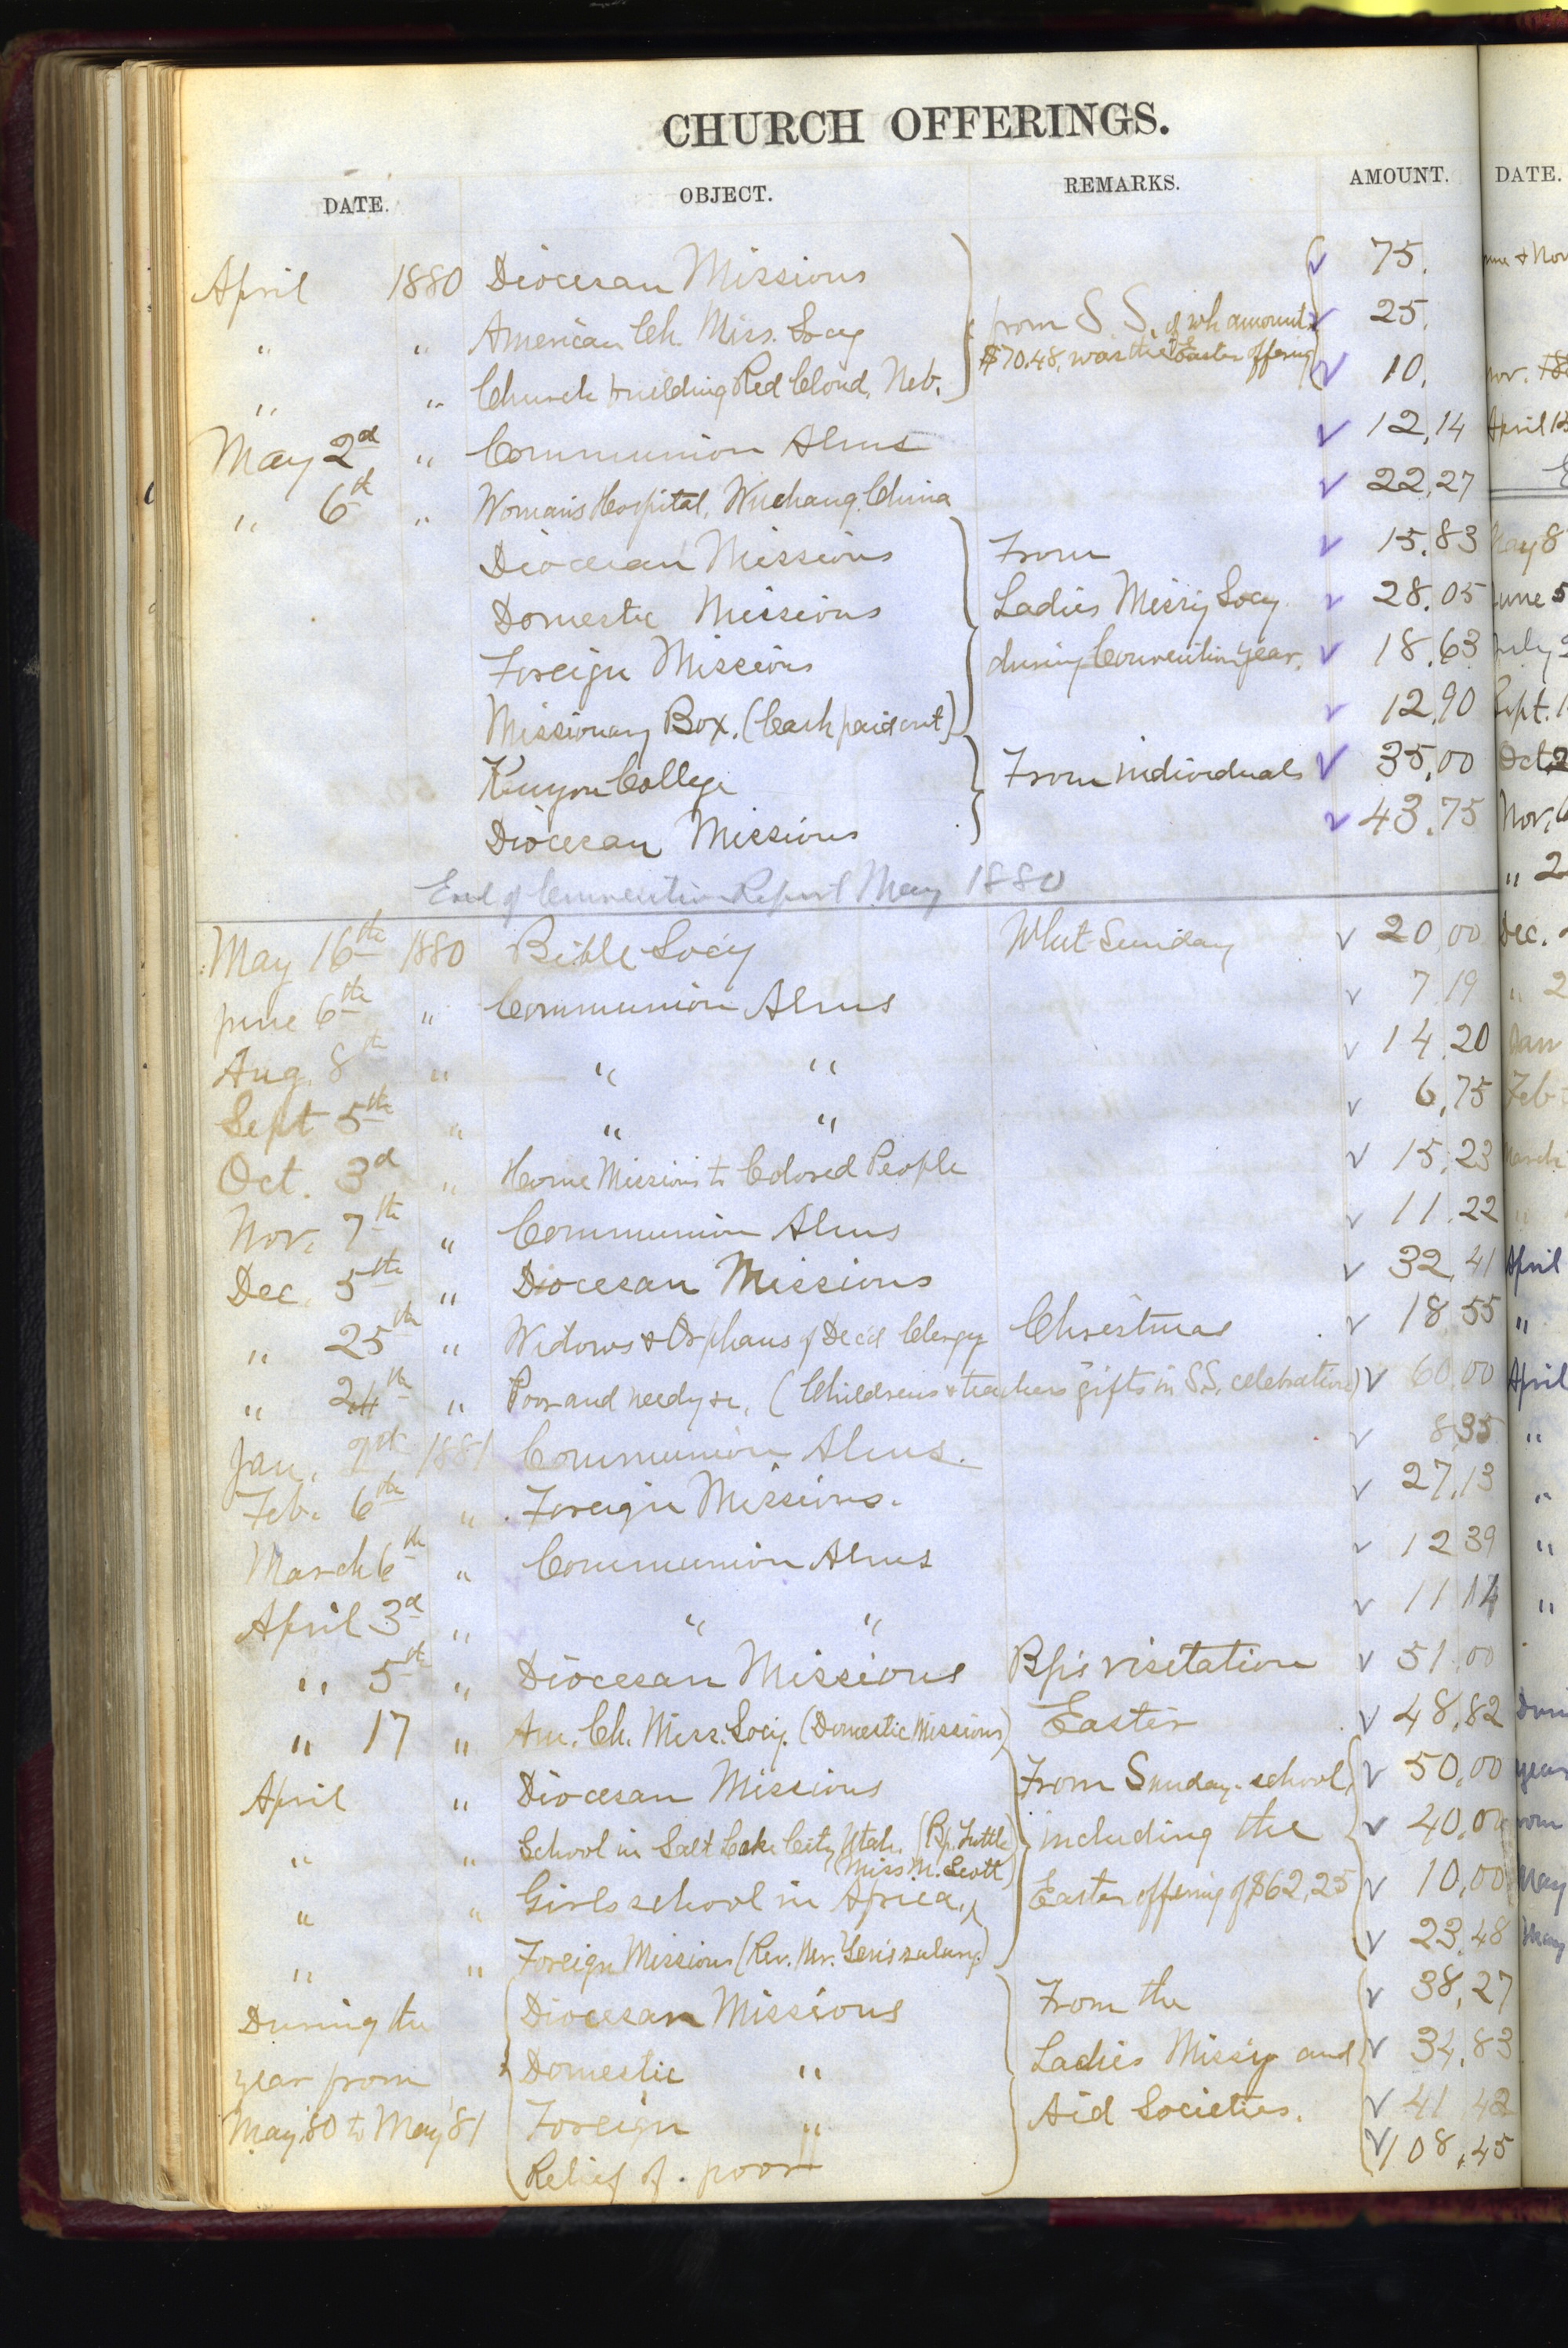 CHURCH OFFERINGS.
DATE. OBJECT. REMARKS. AMOUNT. DATE.
April 1880 Diocesan Missions 75.
" " American Ch. Miss. Socy from S. S. of wh amount 25.
" " Church building Red Cloud, Neb. $70.48, was the Easter offering 10.
May 2d " Communion Alms 12,14
" 6th " Woman's Hospital, Wuchang, China 22,27
Diocesan Missions From 15.83
Domestic Missions Ladies Missy Socy 28.05
Foreign Missions during Convention year. 18.63
Missionary Box. (Cash paid out) 12,90
Kenyon College From individuals 35,00
Diocesan Missions 43.75
End of Convention Report May 1880
May 16th 1880 Bible Socy Whit Sunday 20,00
June 6th " Communion Alms 7,19
Aug. 8th " " " 14.20
Sept 5th " " " 6,75
Oct. 3d " Home Missions to Colored People 15,23
Nov. 7th " Communion Alms 11.22
Dec. 5th " Diocesan Missions 32,41
" 25th " Widows & Orphans of Dec'd Clergy Christmas 18,55
" 24th " Poor and needy &c, (Childrens & teachers gifts in S.S. celebration) 60,00
Jan. 2d 1881 Communion Alms. 8,35
Feb. 6th " Foreign Missions. 27,13
March 6th " Communion Alms 12 39
April 3d " " " 11 14
" 5th " Diocesan Missions Bp's visitation 51.00
" 17 " Am. Ch. Miss. Socy. (Domestic Missions) Easter 48,82
April " Diocesan Missions From Sunday-school, 50,00
" " School in Salt Lake City, Utah. (Bp. Tuttle including the 40,00
Miss M. Scott)
" " Girls school in Africa, Easter offering of $62,25 10,00
" " Foreign Missions (Rev. Mr. Yen's salary) 23,48
During the Diocesan Missions From the 38,27
year from Domestic " Ladies Missy and 34,83
May '80 to May '81 Foreign " Aid Societies. 41 42
Relief of poor 108,45